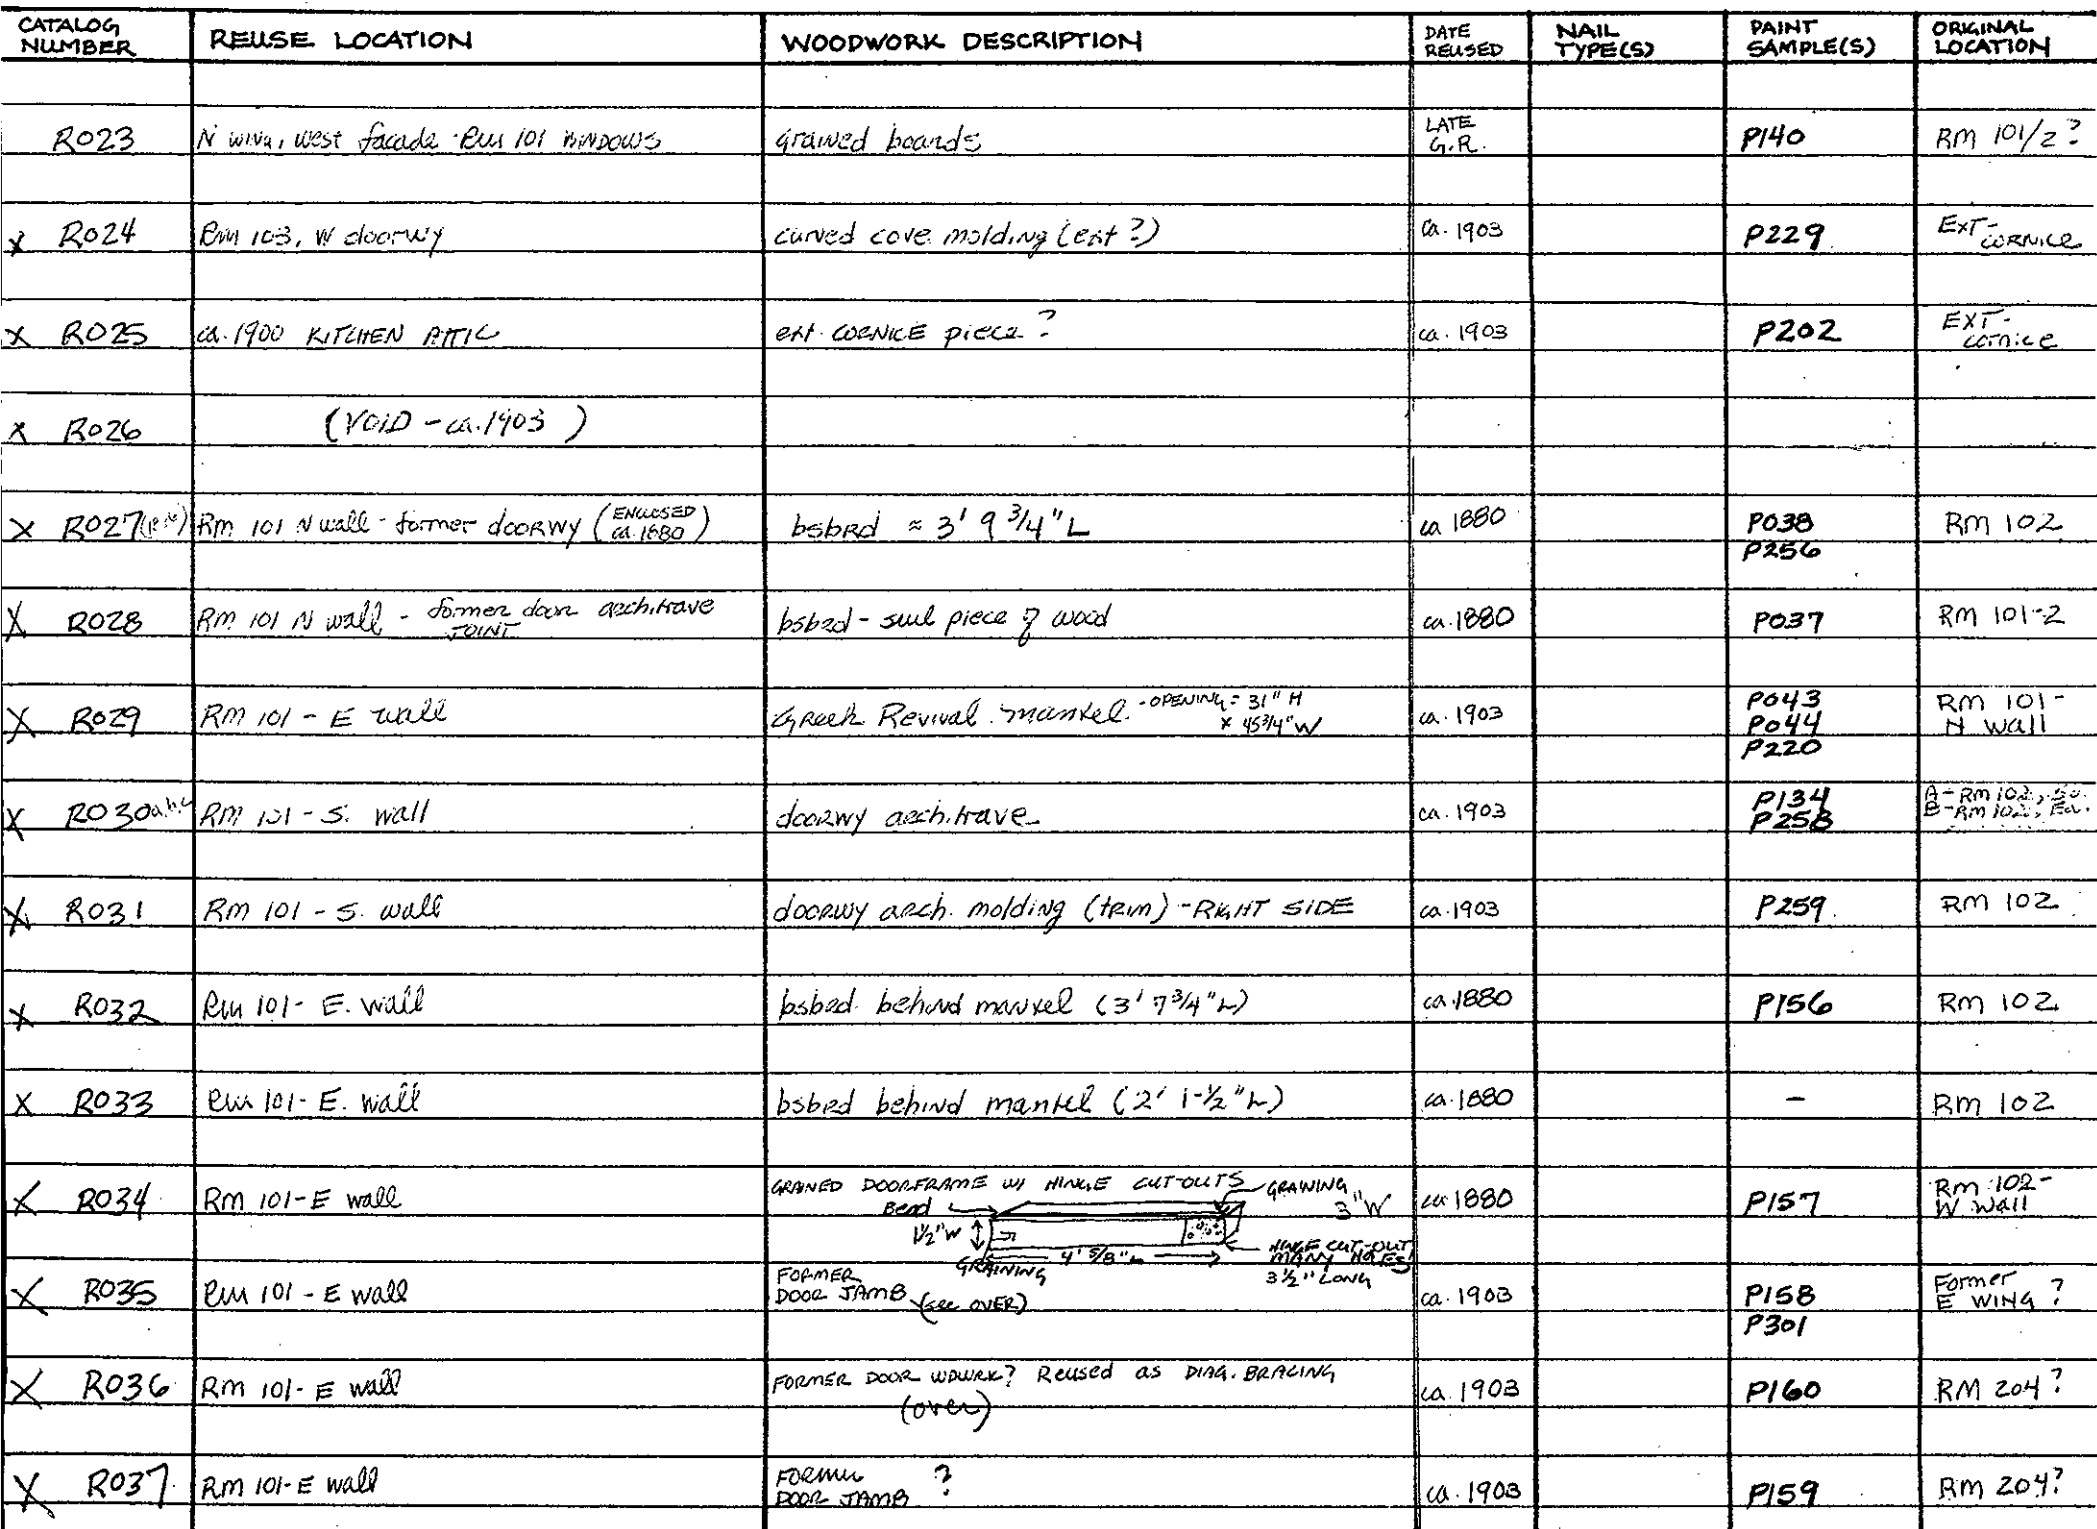 CATALOG NUMBER REUSE LOCATION WOODWORK DESCRIPTION DATE REUSED NAIL TYPE(S) PAINT SAMPLE(S) ORIGINAL LOCATION
R023 N wing, west facade - Rm 101 windows grained boards LATE G.R. P140 RM 101/2?
x R024 Rm 103, W doorwy curved cove molding (ext?) ca. 1903 P229 EXT - CORNICE
x R025 ca. 1900 KITCHEN ATTIC ext. CORNICE piece? ca. 1903 P202 EXT - cornice
x R026 (VOID - ca. 1903)
x R027 Rm 101 N wall - former doorwy (ENCLOSED ca. 1880) bsbrd ≈ 3' 9 3/4" L ca 1880 P038 RM 102
P256
x R028 Rm 101 N wall - former door architrave JOINT bsbrd - small piece of wood ca. 1880 P037 RM 101-2
x R029 Rm 101 - E wall Greek Revival mantel - OPENING = 31" H x 45 3/4" W ca. 1903 P043 RM 101 - N wall
P044
P220
x R030abc Rm 101 - S. wall doorwy architrave ca. 1903 P134 A - Rm 102, So.
P258 B - Rm 102, Ea.
x R031 Rm 101 - S. wall doorwy arch. molding (trim) - RIGHT SIDE ca. 1903 P259 RM 102
x R032 Rm 101 - E. wall bsbrd behind mantel (3' 7 3/4" L) ca. 1880 P156 RM 102
x R033 Rm 101 - E. wall bsbrd behind mantel (2' 1-1/2" L) ca. 1880 - RM 102
x R034 Rm 101 - E wall GRAINED DOORFRAME W/ HINGE CUT-OUTS ca 1880 P157 Rm 102 - W wall
Bead GRAINING 3" W
1 1/2" W
4' 5/8" L HINGE CUT-OUT MANY HOLES!
GRAINING 3 1/2" LONG
x R035 Rm 101 - E wall FORMER DOOR JAMB (see OVER) ca. 1903 P158 Former E WING?
P301
x R036 Rm 101 - E wall FORMER DOOR WDWRK? Reused as DIAG. BRACING ca. 1903 P160 RM 204?
(over)
x R037 Rm 101 - E wall FORMER DOOR JAMB ? ca. 1903 P159 RM 204?